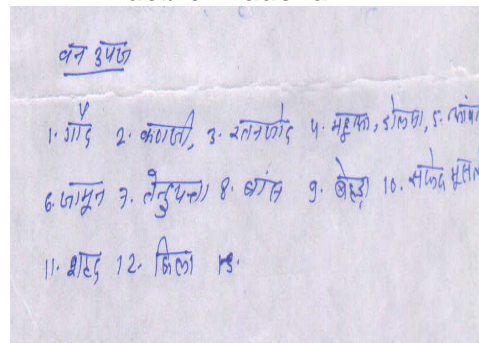 वन उपज
1. गोंद 2. कणजी, 3. रतनजोद 4. महूआ, डोलमा, 5.
6. जामून 7. तेन्दुपत्ता 8. बांस 9. बेहड़ा 10. सफेद मूसली
11. शहद 12. 13.